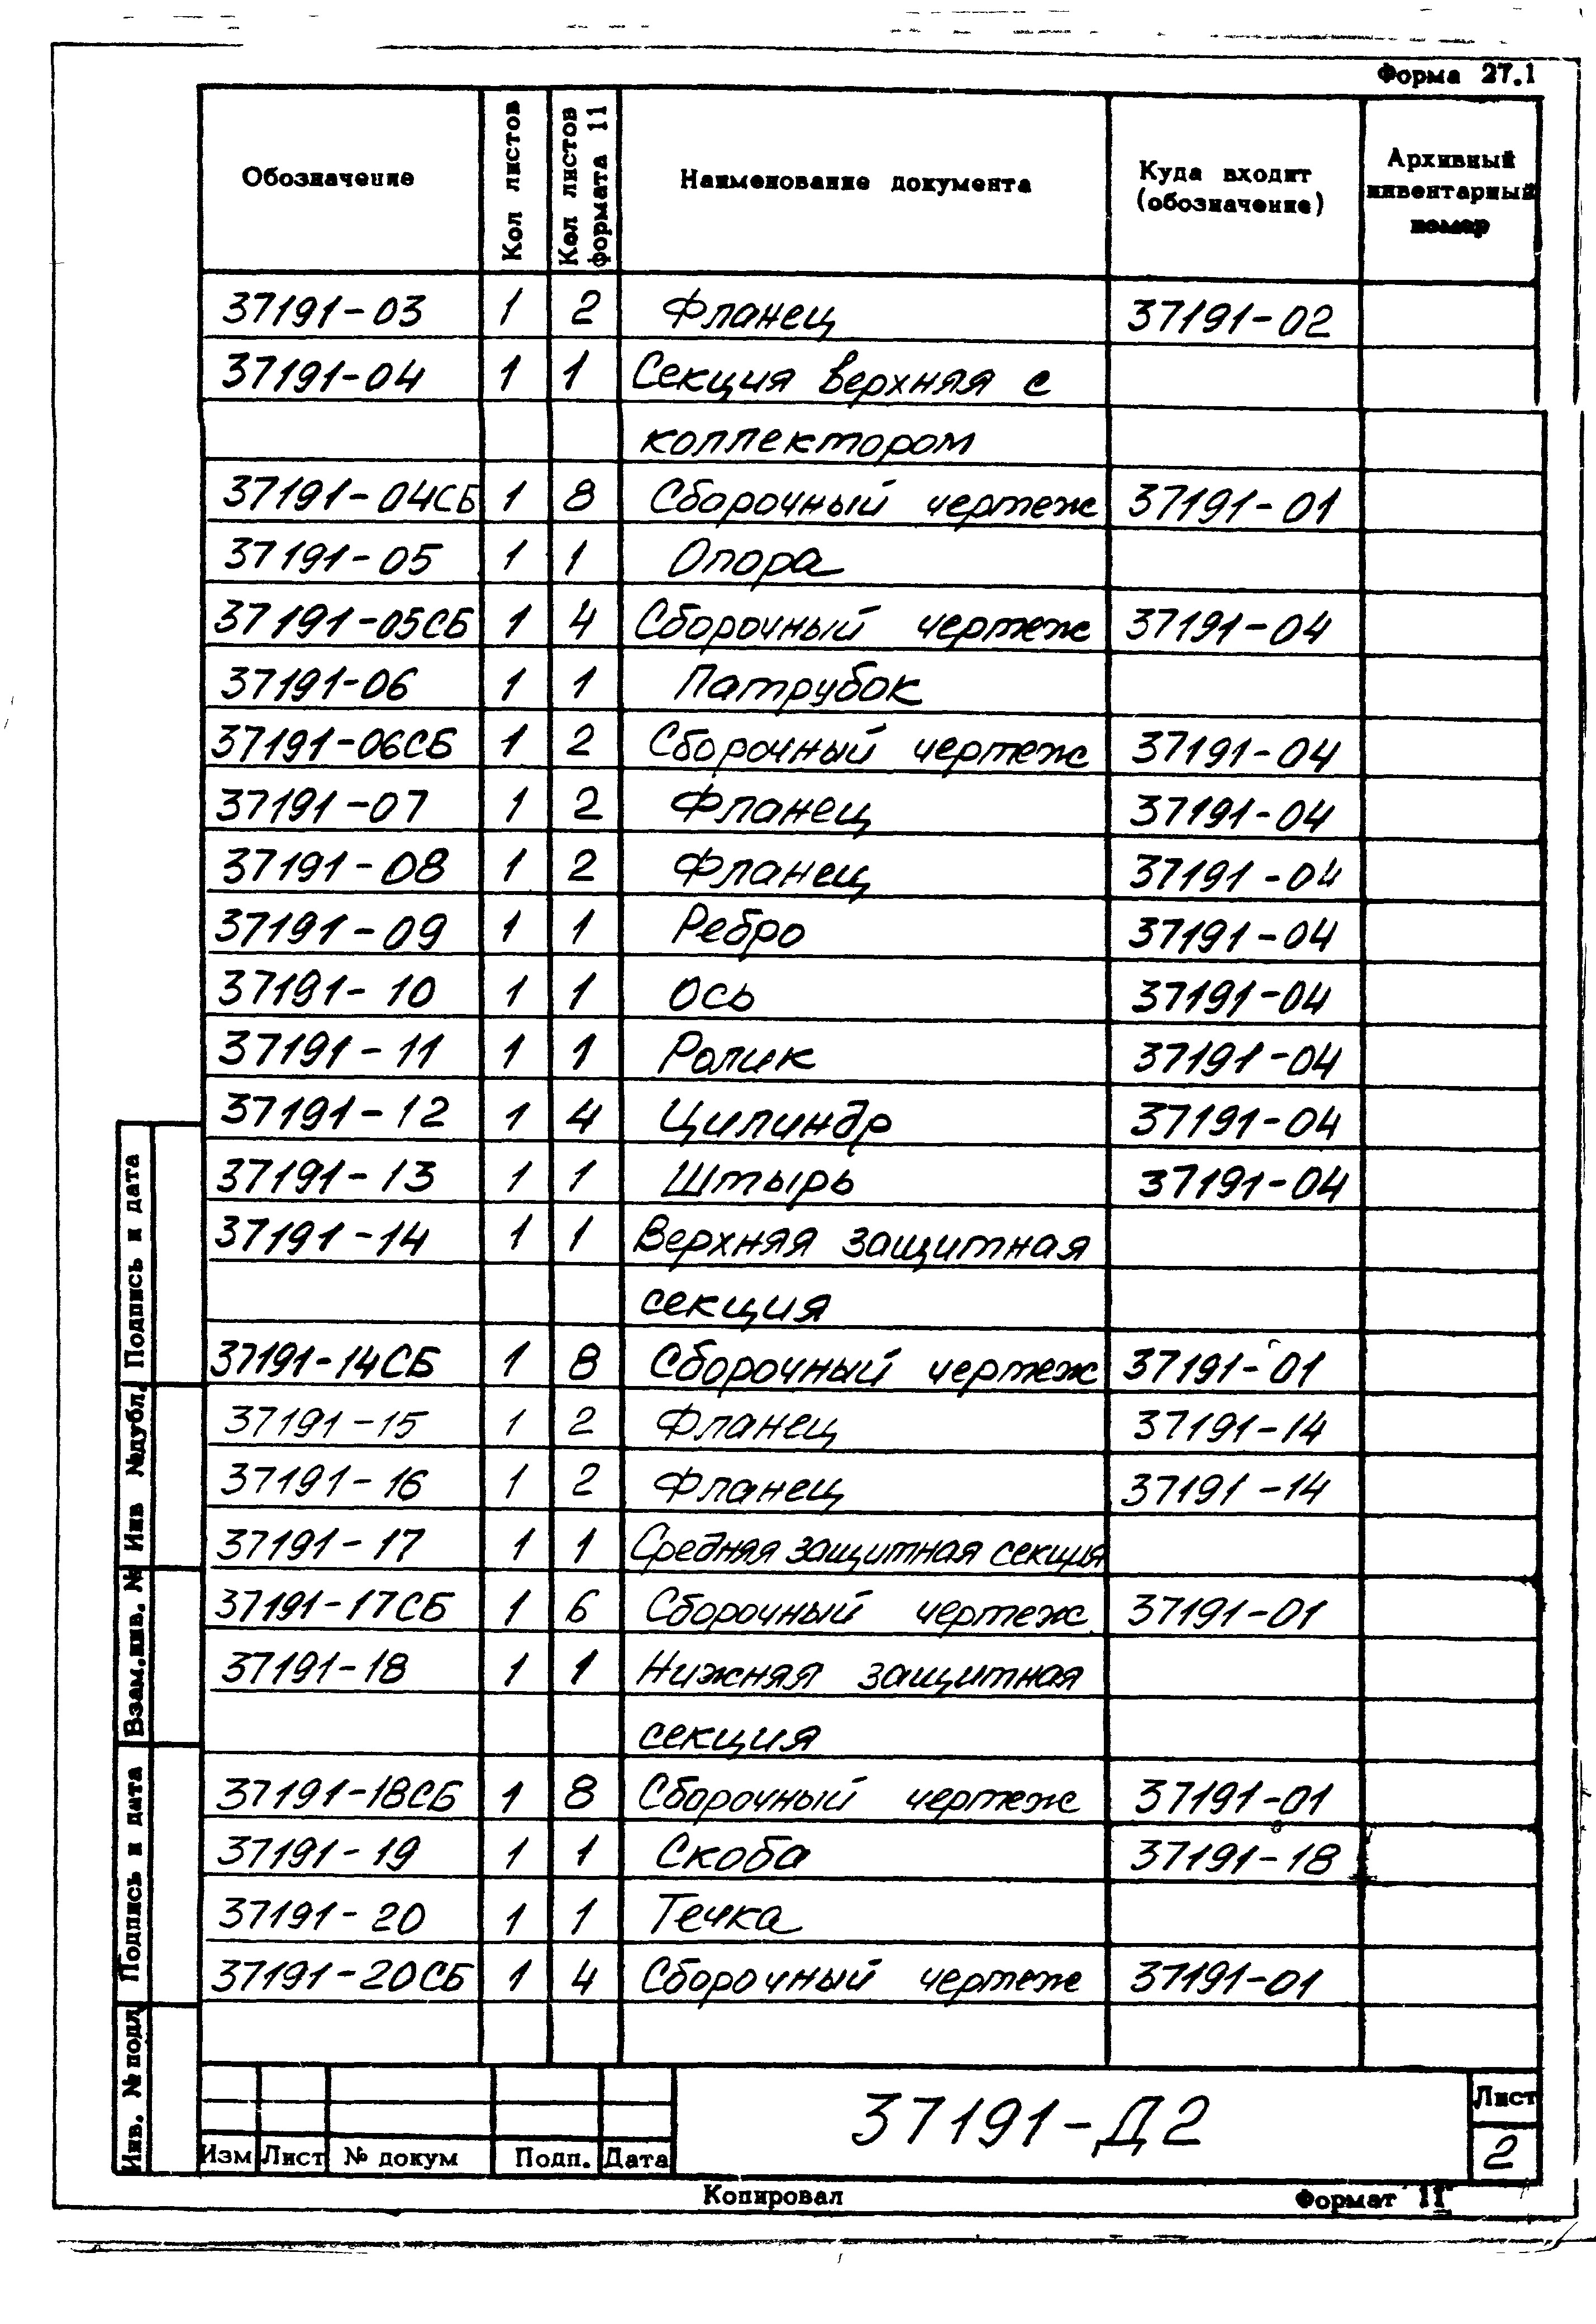 Форма 27.1
Обозначение | Кол листов | Кол листов формата 11 | Наименование документа | Куда входит (обозначение) | Архивный инвентарный номер
37191-03 1 2 Фланец 37191-02
37191-04 1 1 Секция верхняя с
коллектором
37191-04СБ 1 8 Сборочный чертеж 37191-01
37191-05 1 1 Опора
37191-05СБ 1 4 Сборочный чертеж 37191-04
37191-06 1 1 Патрубок
37191-06СБ 1 2 Сборочный чертеж 37191-04
37191-07 1 2 Фланец 37191-04
37191-08 1 2 Фланец 37191-04
37191-09 1 1 Ребро 37191-04
37191-10 1 1 Ось 37191-04
37191-11 1 1 Ролик 37191-04
37191-12 1 4 Цилиндр 37191-04
37191-13 1 1 Штырь 37191-04
37191-14 1 1 Верхняя защитная
секция
37191-14СБ 1 8 Сборочный чертеж 37191-01
37191-15 1 2 Фланец 37191-14
37191-16 1 2 Фланец 37191-14
37191-17 1 1 Средняя защитная секция
37191-17СБ 1 6 Сборочный чертеж 37191-01
37191-18 1 1 Нижняя защитная
секция
37191-18СБ 1 8 Сборочный чертеж 37191-01
37191-19 1 1 Скоба 37191-18
37191-20 1 1 Течка
37191-20СБ 1 4 Сборочный чертеж 37191-01
Подпись и дата
Инв №дубл.
Взам.инв. №
Подпись и дата
Инв. № подл
Изм Лист № докум Подп. Дата
37191-Д2
Лист
2
Копировал
Формат 11